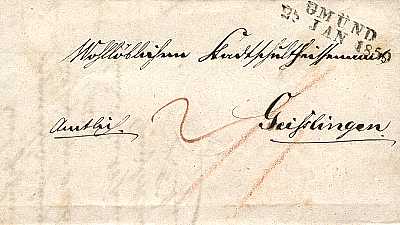 GMÜND
25 JAN 1850
Wohllöblichem Stadtschultheissenamt
Amtlich.
2
Geißlingen.